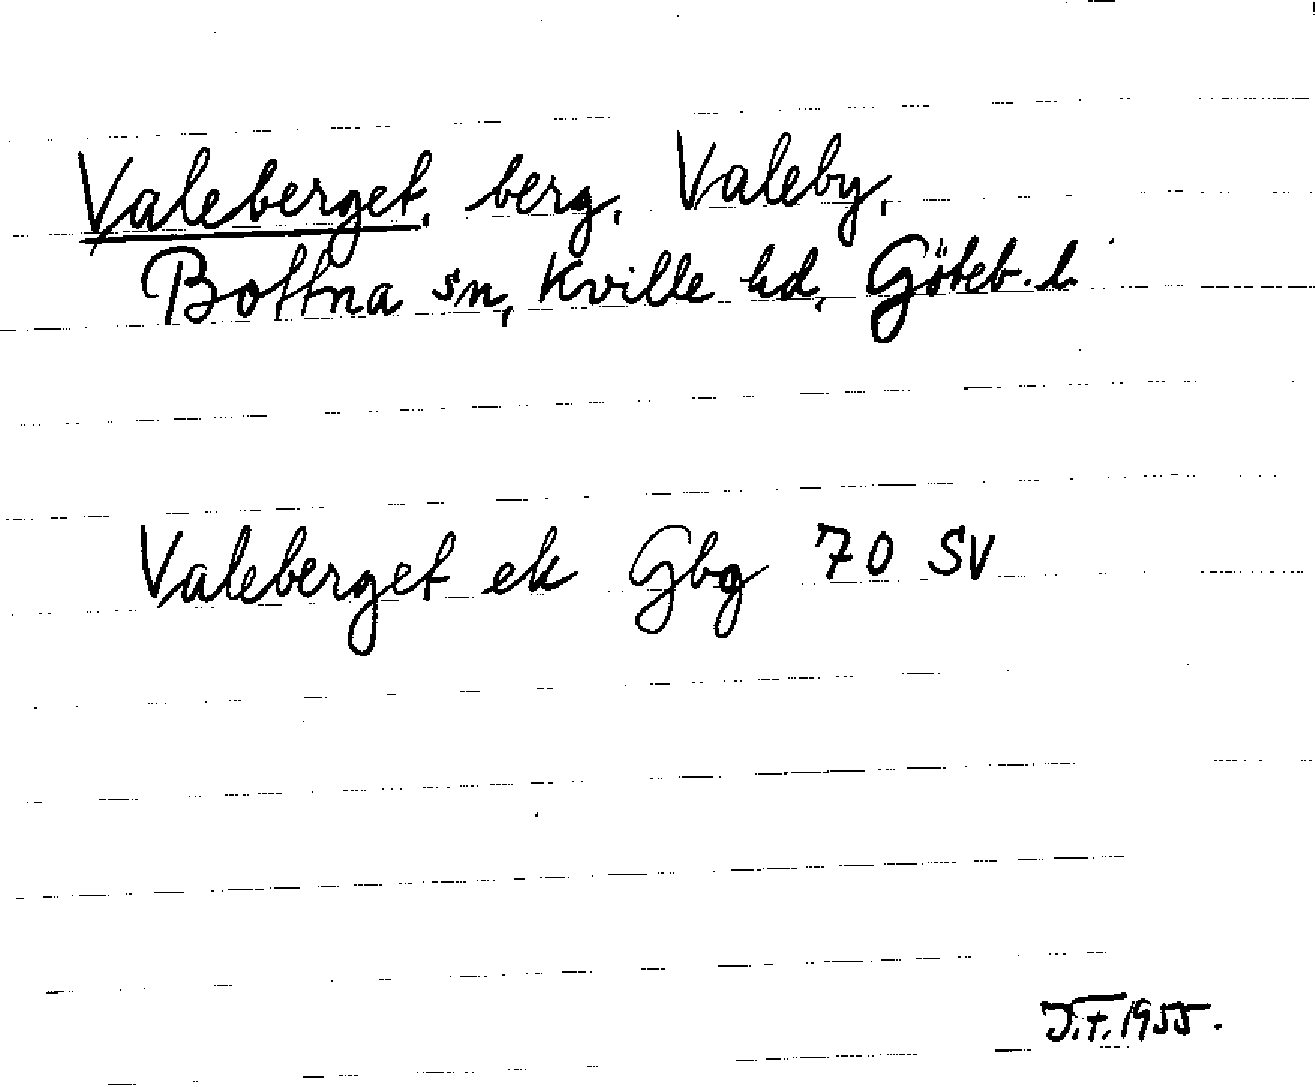 Valeberget, berg, Valeby,
Bottna sn, Kville hd, Göteb. l.
Valeberget ek Gbg 70 SV
J.F. 1955.